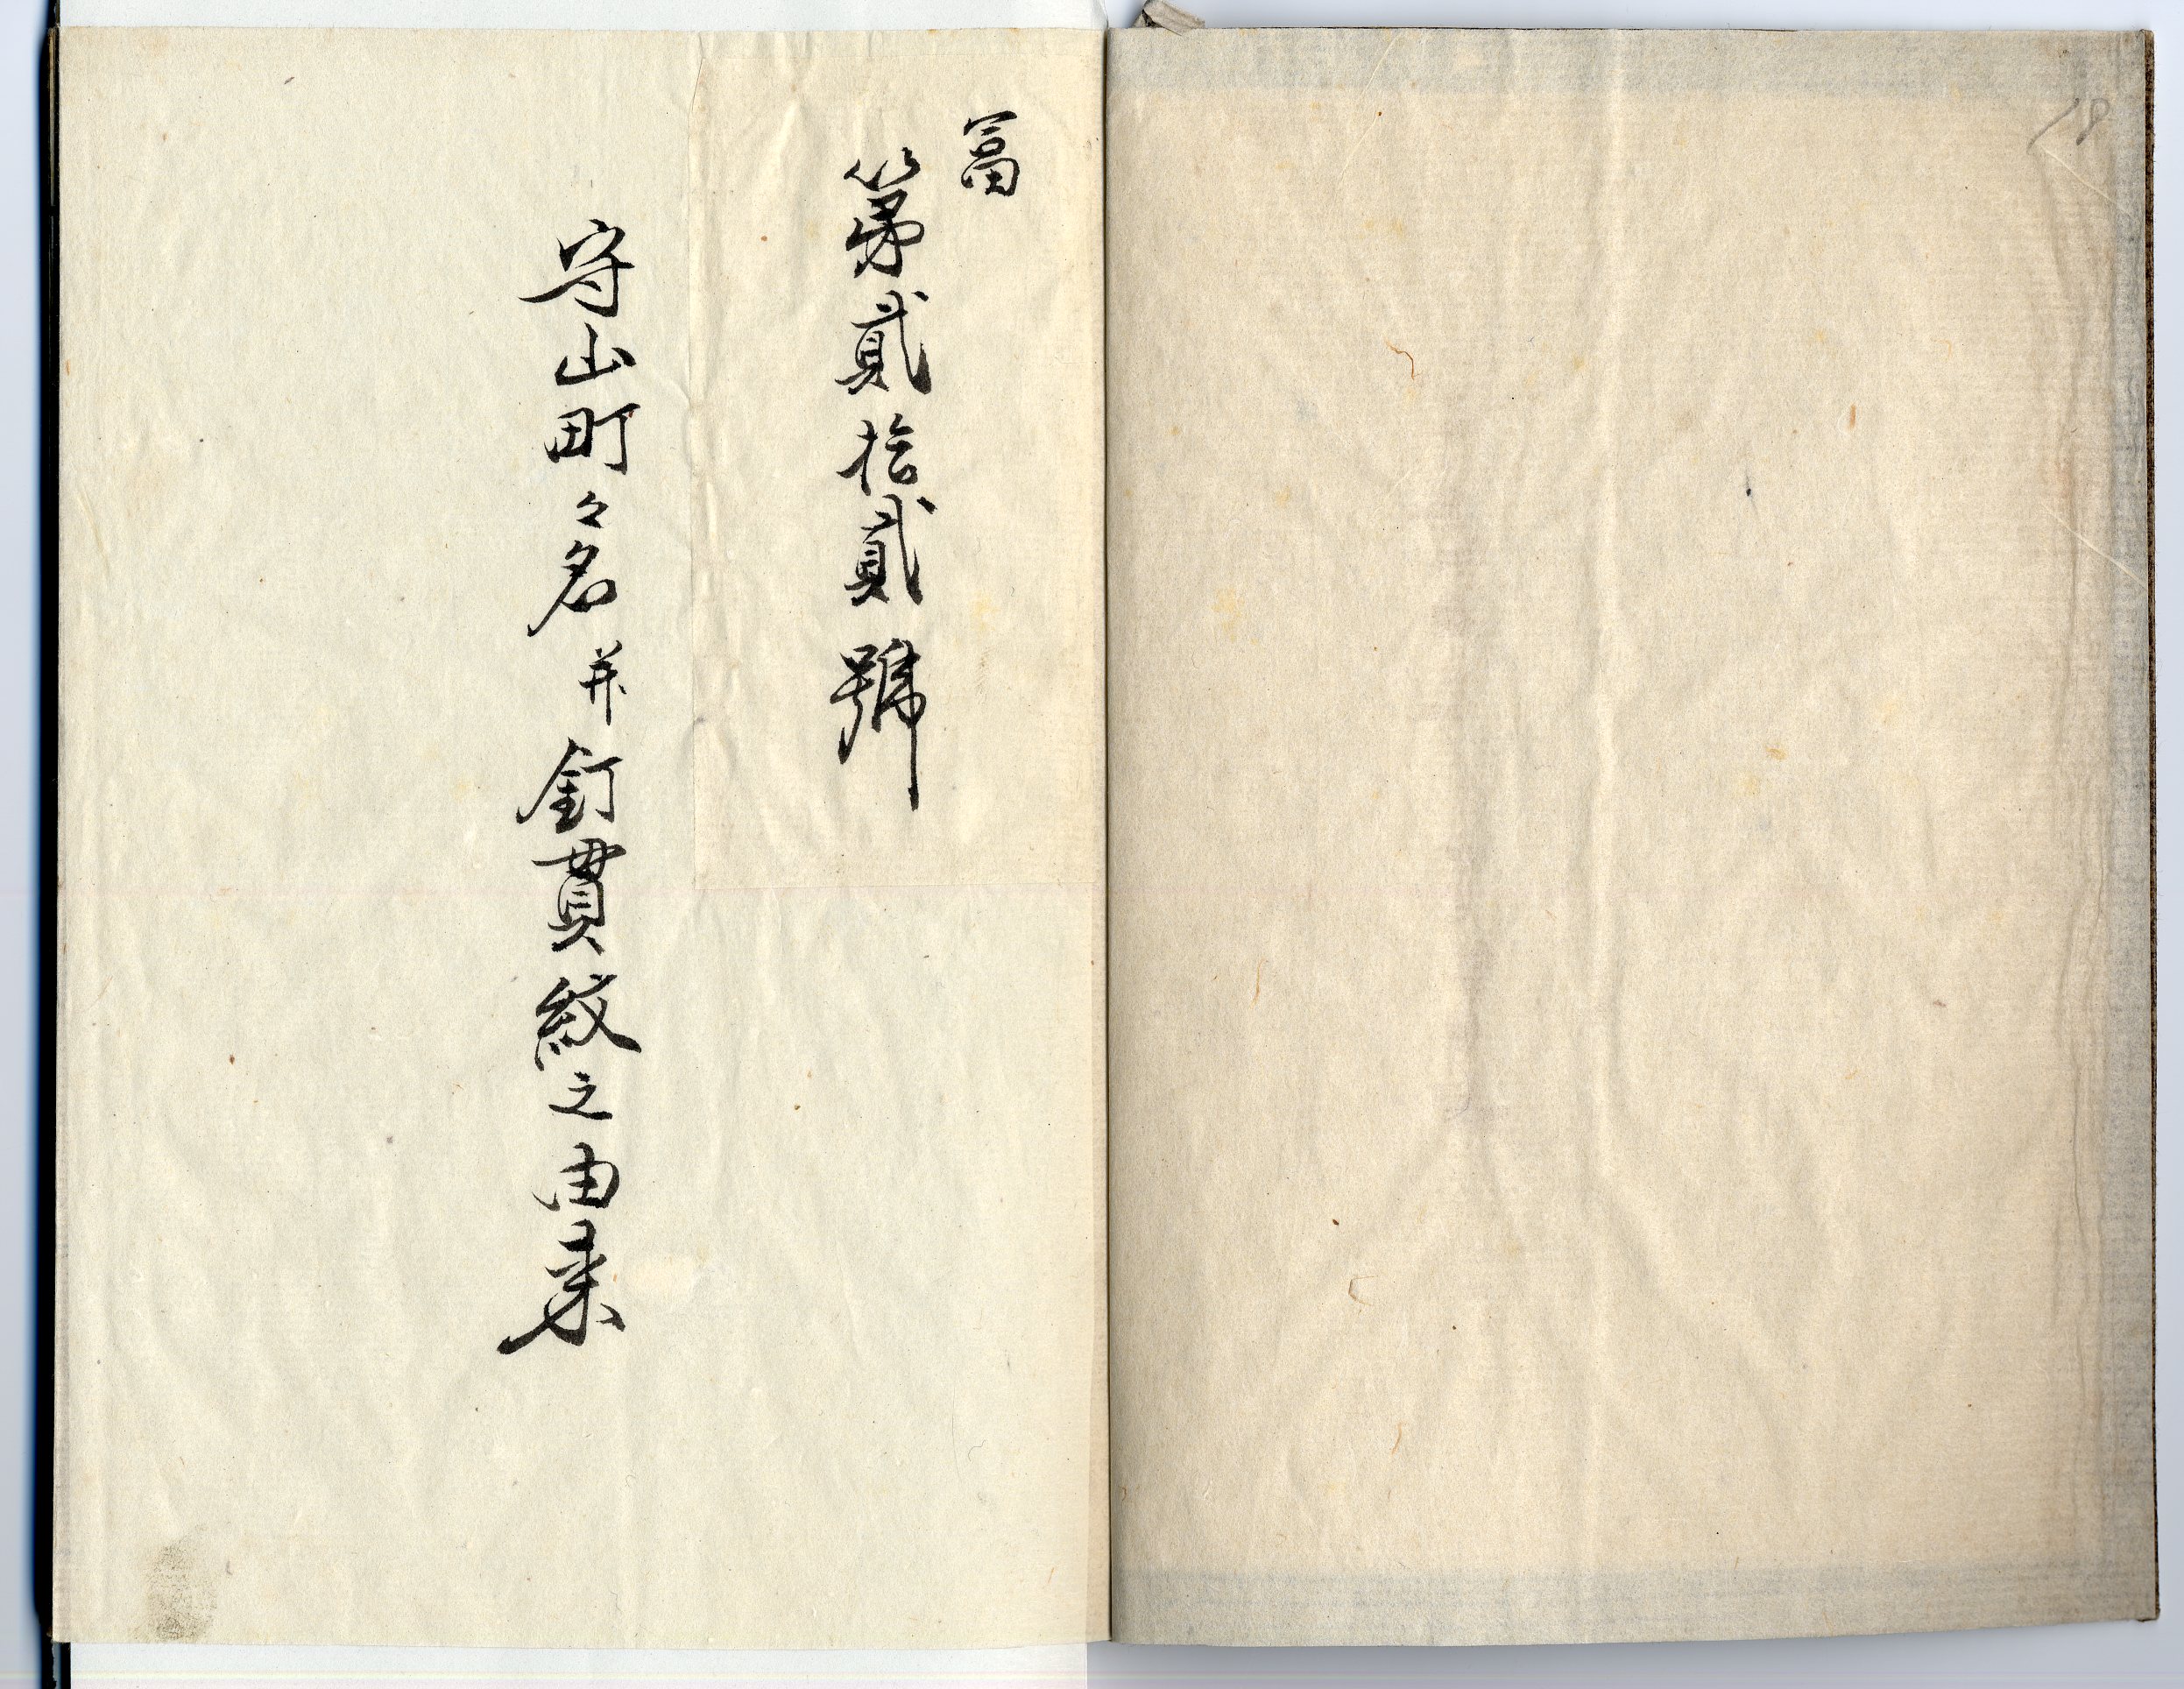 18
冨
第貳拾貳號
守山町々名并釘貫紋之由来